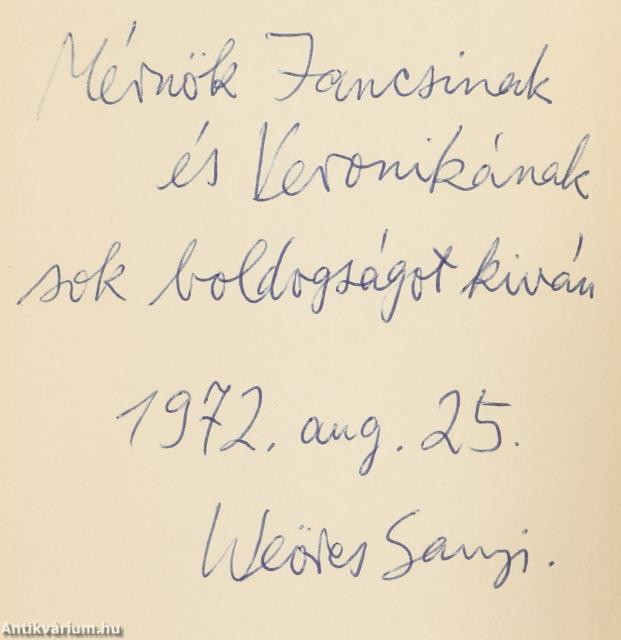 Mérnök Jancsinak
és Veronikának
sok boldogságot kiván
1972. aug. 25.
Weöres Sanyi.
Antikvárium.hu